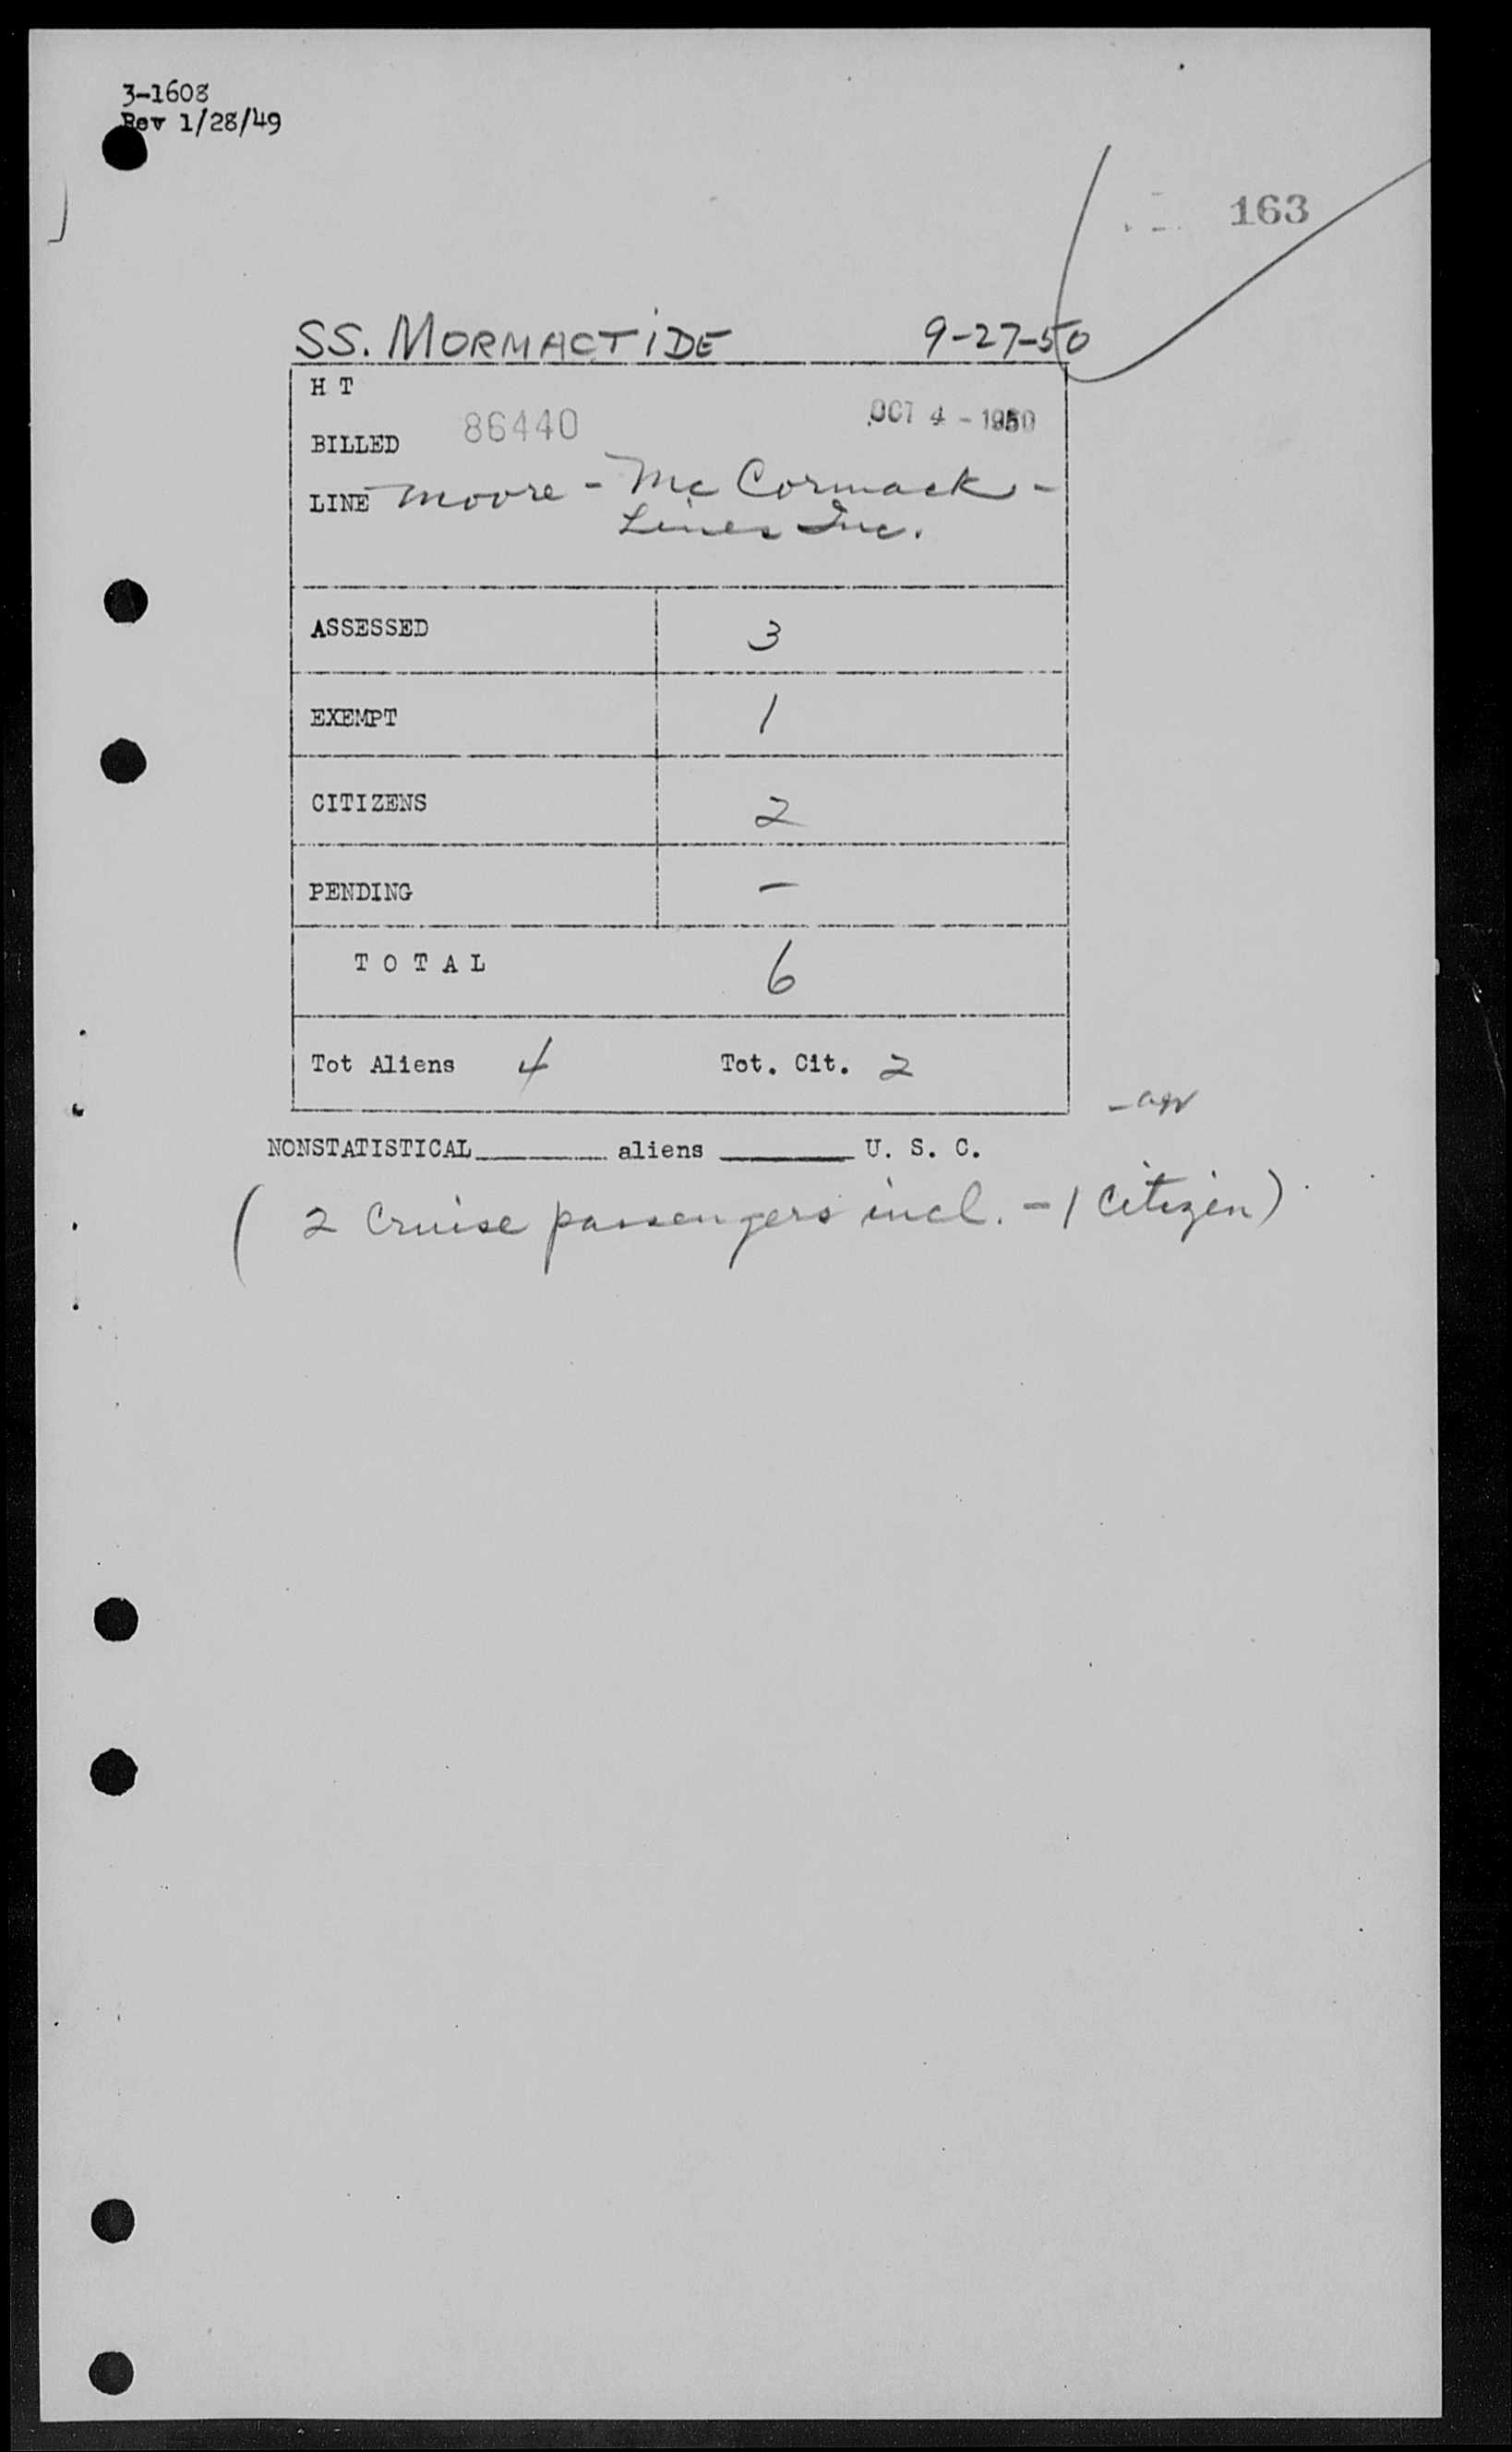 3-1608
Rev 1/28/49
163
SS. MORMACTIDE 9-27-50
H T
BILLED 86440 OCT 4 - 1950
LINE Moore - McCormack -
Lines Inc.
ASSESSED 3
EXEMPT 1
CITIZENS 2
PENDING -
TOTAL 6
Tot Aliens 4 Tot. Cit. 2
NONSTATISTICAL______ aliens ______ U. S. C.
( 2 Cruise passengers incl. - 1 Citizen)